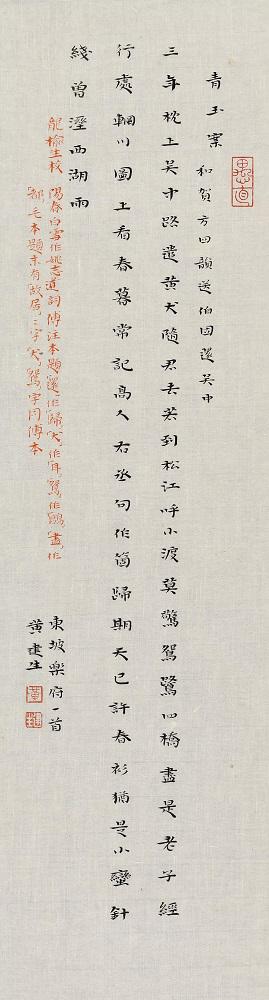 青玉案
和賀方回韻送伯固還吳中
三年枕上吳中路遣黃犬隨君去若到松江呼小渡莫驚鴛鷺四橋盡是老子經
行處輞川圖上看春暮常記高人右丞句作箇歸期天已許春衫猶是小蠻針
綫曾溼西湖雨
龍榆生校
陽春白雪作姚志道詞傅注本題還作歸犬作耳鴛作鷗盡作
都毛本題末有故居二字犬鴛字同傅本
東坡樂府一首
黃建生
思直
黃